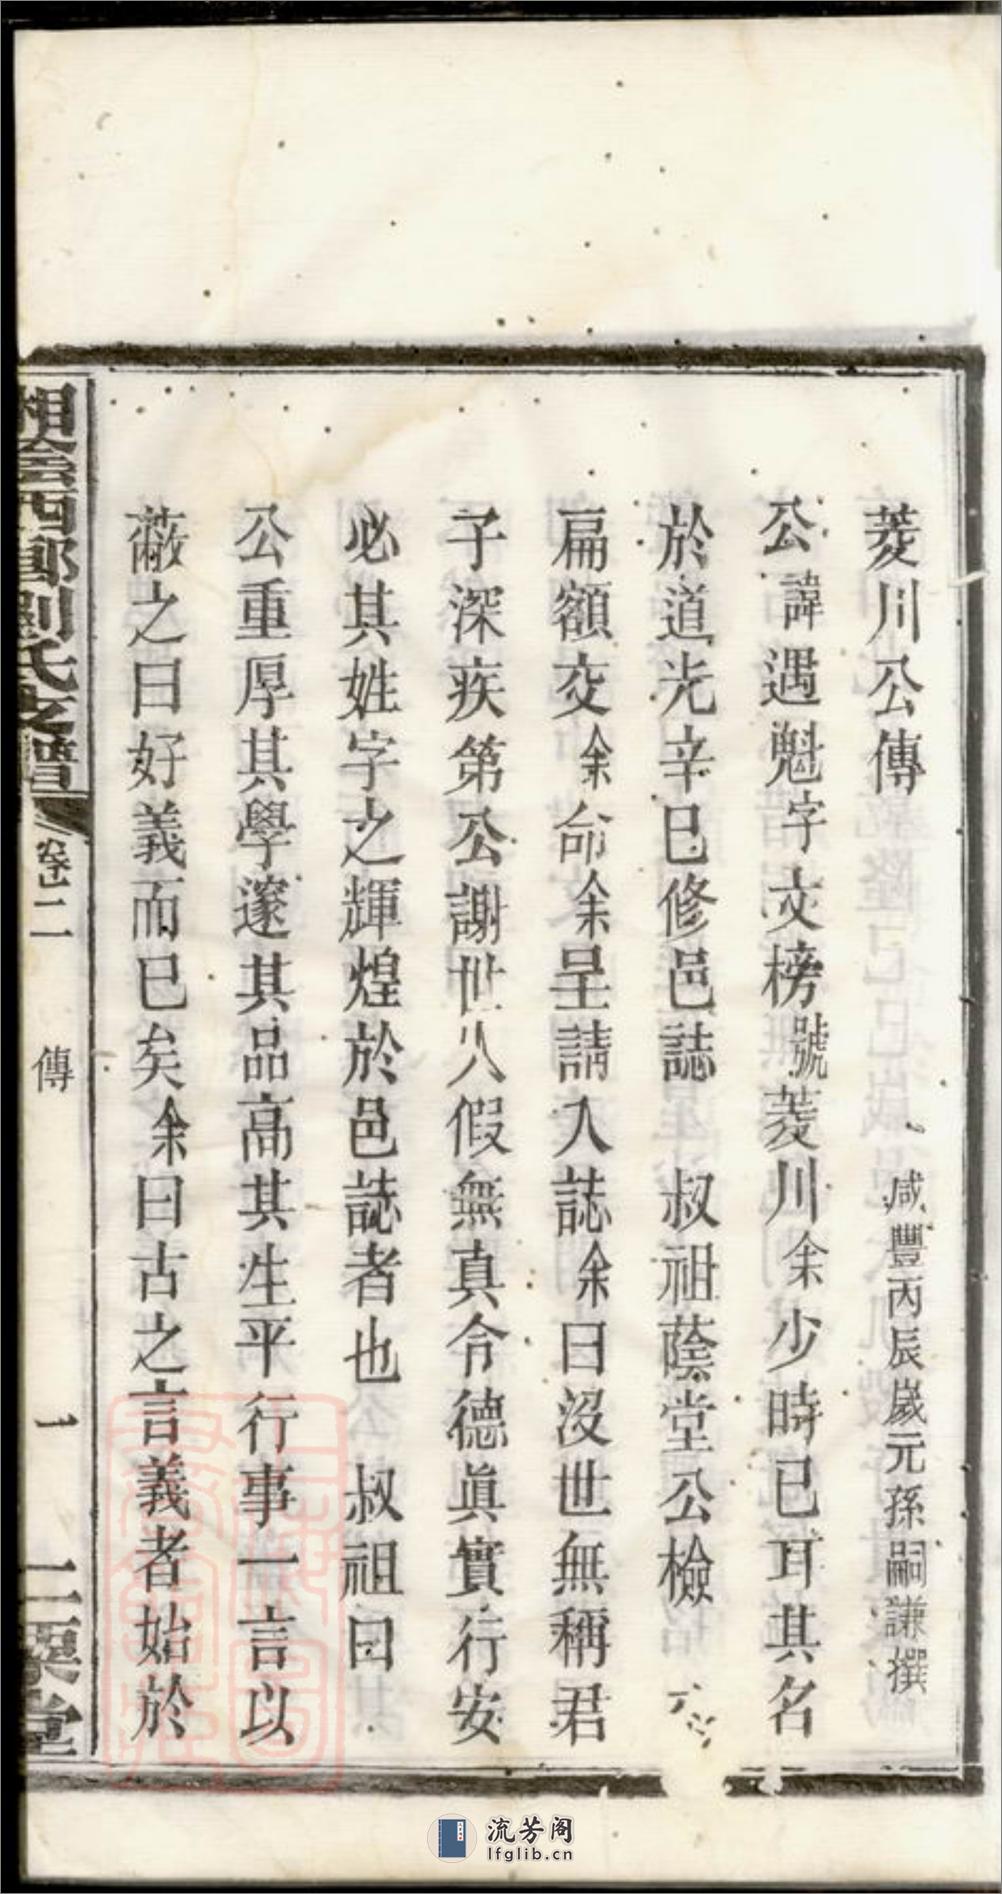 菱川公傳
咸豐丙辰歲元孫嗣謙撰
公諱遇魁字文榜號菱川余少時已耳其名
於道光辛巳修邑誌　叔祖蔭堂公檢
扁額交余命余呈請入誌余曰沒世無稱君
子深疾第公謝世久假無真令德眞實行安
必其姓字之輝煌於邑誌者也　叔祖曰
公重厚其學邃其品高其生平行事一言以
蔽之曰好義而已矣余曰古之言義者始於
湘陰西鄉劉氏支譜
卷二
傳
一
二栗堂
流芳阁
lfglib.cn